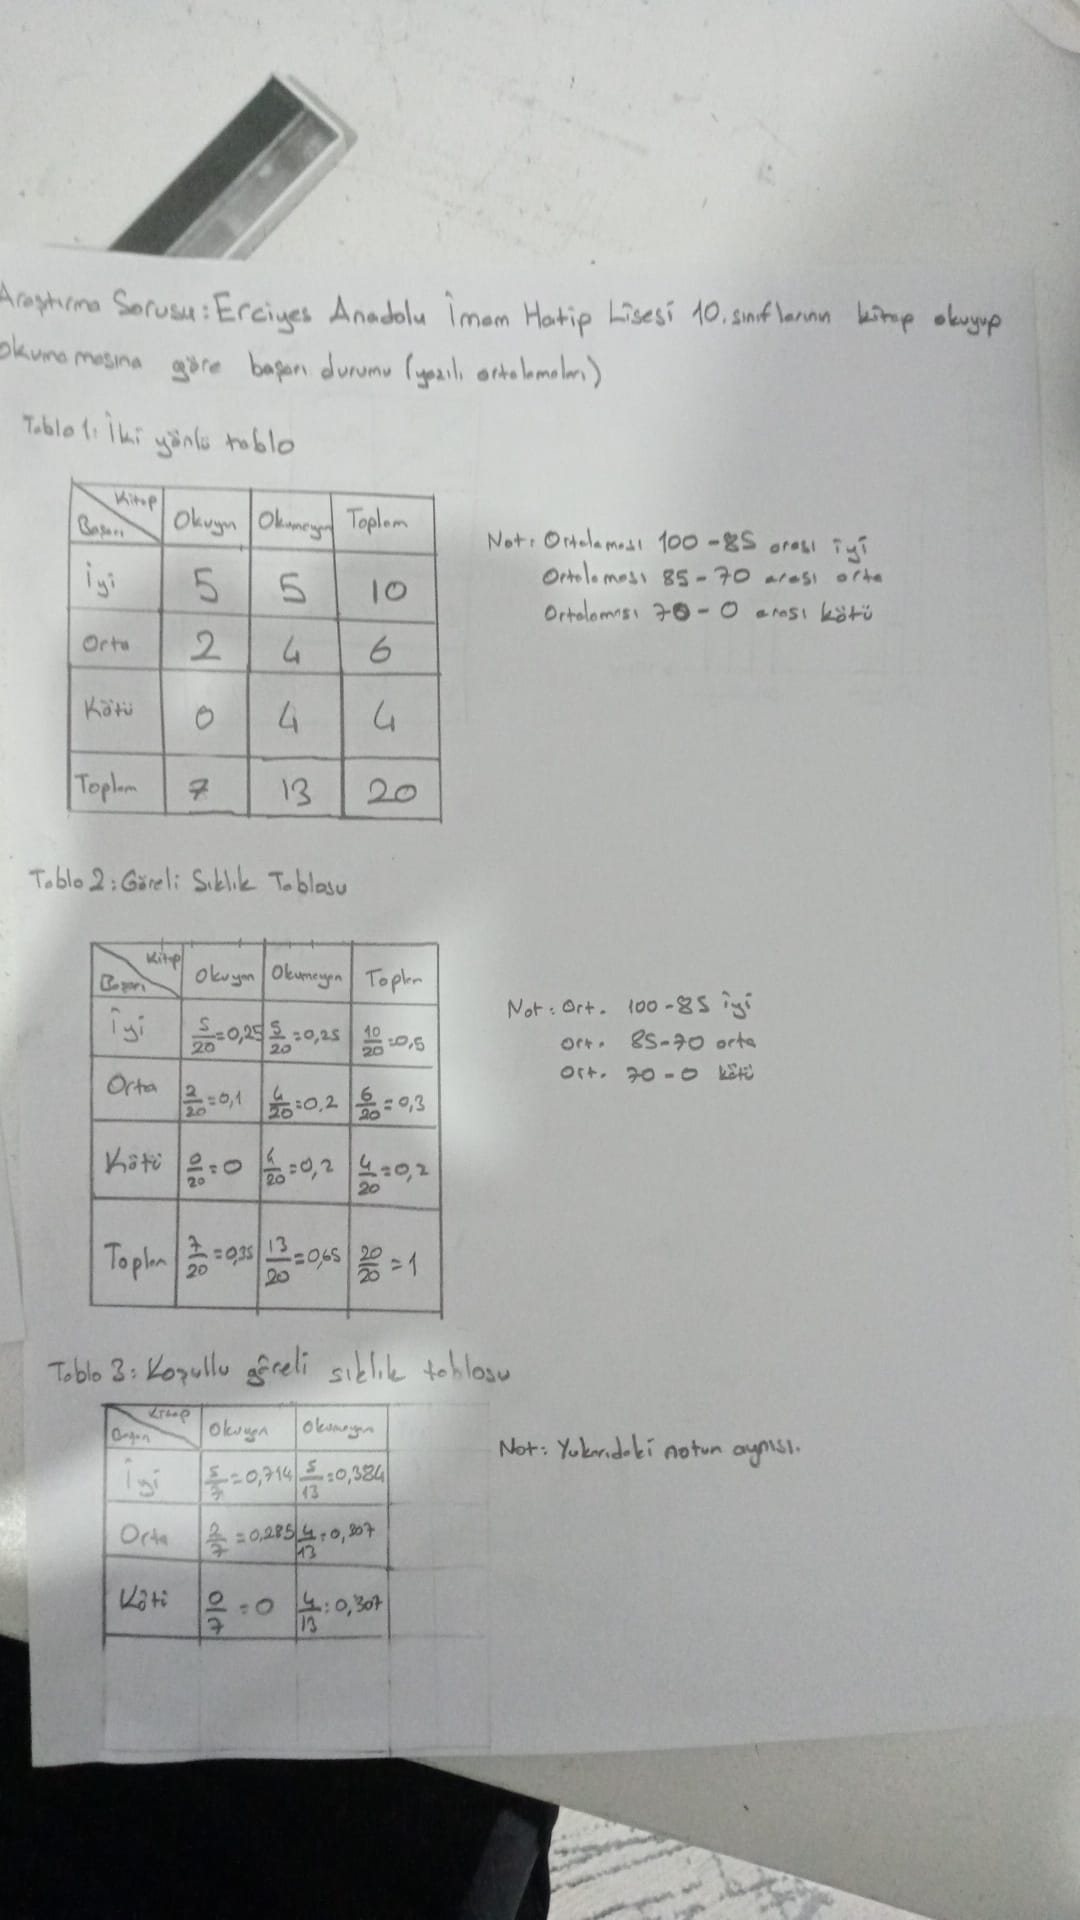 Araştırma Sorusu: Erciyes Anadolu İmam Hatip Lisesi 10. sınıflarının kitap okuyup
okumamasına göre başarı durumu (yazılı ortalamaları)
Tablo 1: İki yönlü tablo
Kitap
Başarı Okuyan Okumayan Toplam
İyi 5 5 10
Orta 2 4 6
Kötü 0 4 4
Toplam 7 13 20
Not: Ortalaması 100-85 arası iyi
Ortalaması 85-70 arası orta
Ortalaması 70-0 arası kötü
Tablo 2: Göreli Sıklık Tablosu
Kitap
Başarı Okuyan Okumayan Toplam
İyi 5/20=0,25 5/20=0,25 10/20=0,5
Orta 2/20=0,1 4/20=0,2 6/20=0,3
Kötü 0/20=0 4/20=0,2 4/20=0,2
Toplam 7/20=0,35 13/20=0,65 20/20=1
Not: Ort. 100-85 iyi
Ort. 85-70 orta
Ort. 70-0 kötü
Tablo 3: Koşullu göreli sıklık tablosu
Kitap
Başarı Okuyan Okumayan
İyi 5/7=0,714 5/13=0,384
Orta 2/7=0,285 4/13=0,307
Kötü 0/7=0 4/13=0,307
Not: Yukarıdaki notun aynısı.